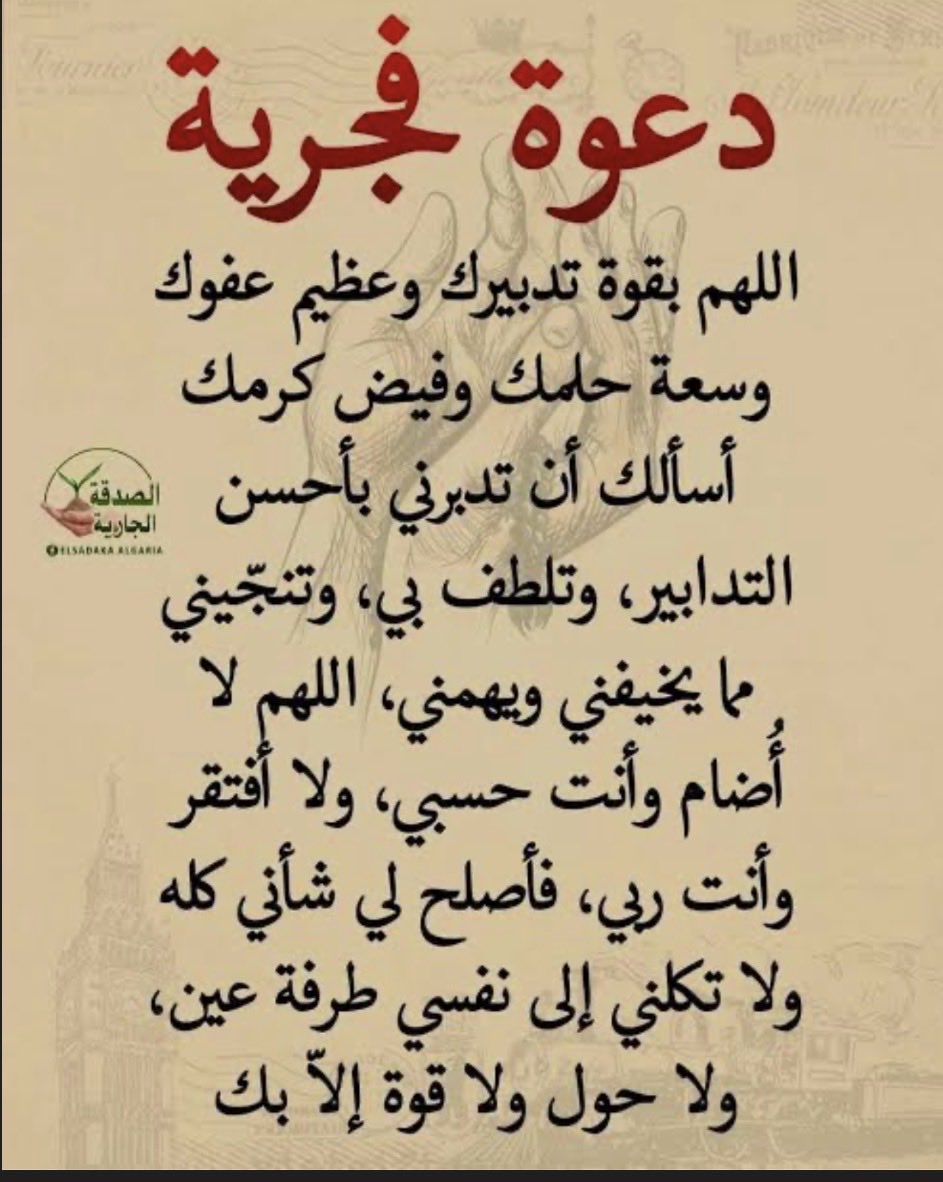 دعوة فجرية
اللهم بقوة تدبيرك وعظيم عفوك
وسعة حلمك وفيض كرمك
أسألك أن تدبرني بأحسن
التدابير، وتلطف بي، وتنجّيني
مما يخيفني ويهمني، اللهم لا
أُضام وأنت حسبي، ولا أفتقر
وأنت ربي، فأصلح لي شأني كله
ولا تكلني إلى نفسي طرفة عين،
ولا حول ولا قوة إلاّ بك
الصدقة
الجارية
ELSADAKA ALGARIA